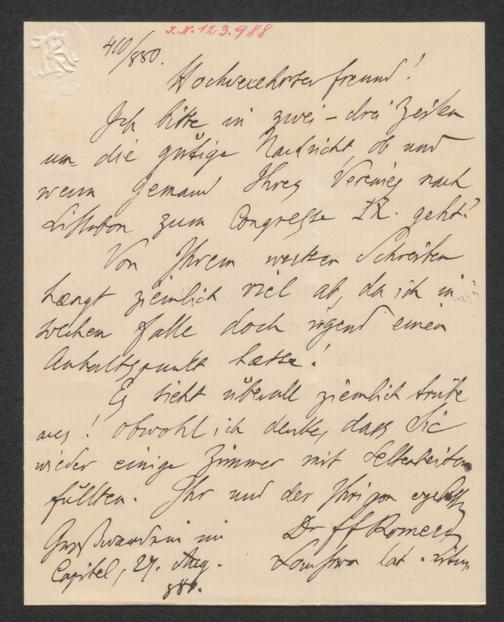 J.N. 123.988
410/880.
Hochverehrter Freund!
Ich bitte in zwei – drei Zeilen
um die gütige Nachricht ob und
wenn Jemand Ihres Vereines nach
Lissabon zum Congresse geht?
Von Ihrem werten Schreiben
haengt ziemlich viel ab, da ich in
welchem Falle doch irgend einen
Anhaltspunkt hätte!
Es sieht überall ziemlich trübe
aus! obwohl ich denke, dass Sie
wieder einige Zimmer mit Seltenheiten
füllten. Ihr und der Ihrigen
Großwardein im Dr FF Romer
Capitel, 27. Aug.
880.